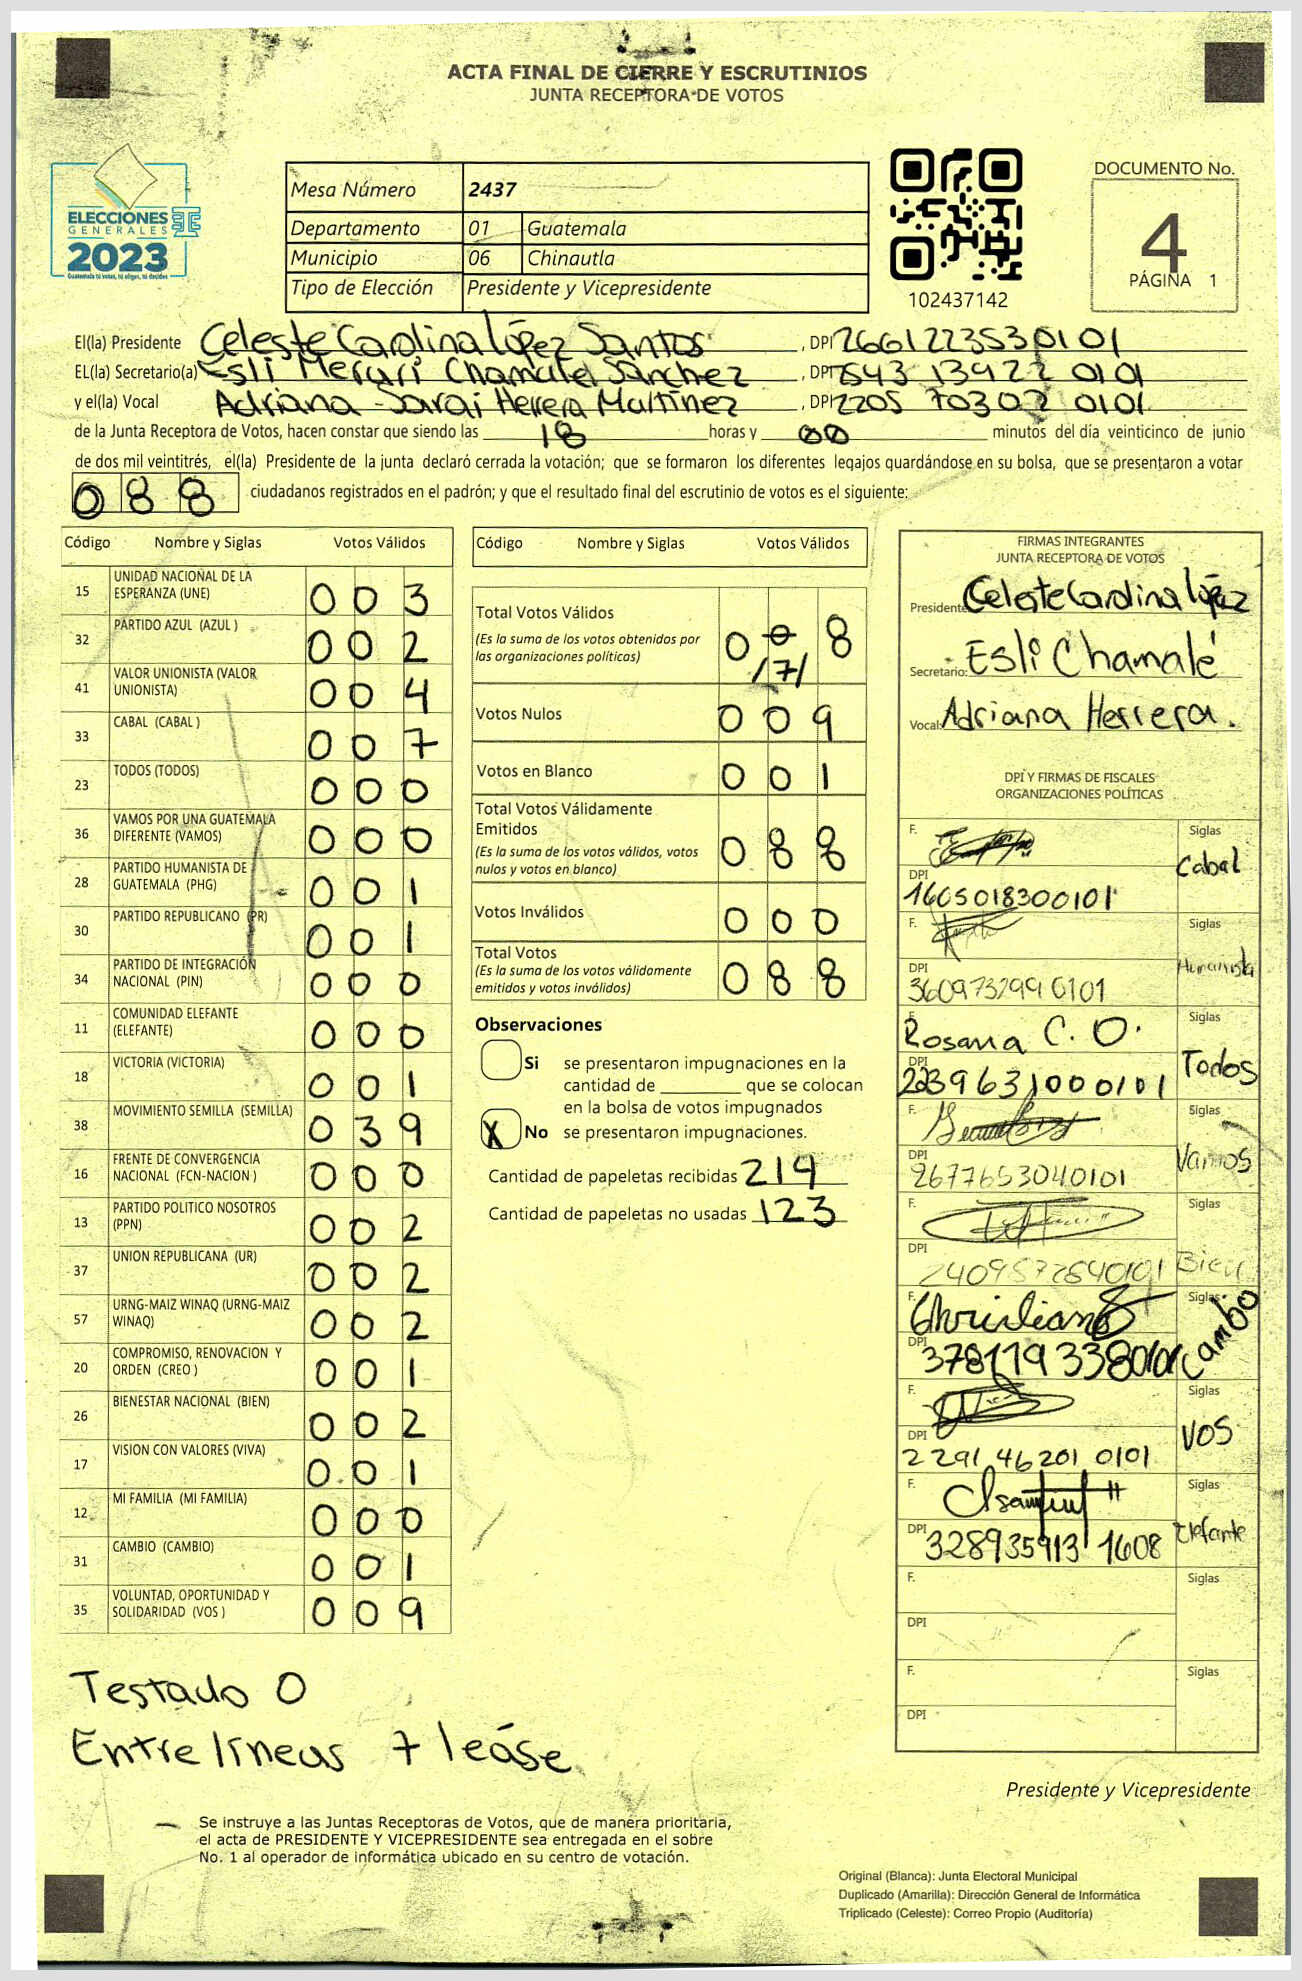 ACTA FINAL DE CIERRE Y ESCRUTINIOS
JUNTA RECEPTORA DE VOTOS
ELECCIONES
GENERALES
2023
Guatemala tú votas, tú eliges, tú decides
Mesa Número 2437
Departamento 01 Guatemala
Municipio 06 Chinautla
Tipo de Elección Presidente y Vicepresidente
102437142
DOCUMENTO No.
4
PÁGINA 1
El(la) Presidente Celeste Carolina López Santos, DPI 2661223530101
EL(la) Secretario(a) Esli Merari Chamalel Sánchez, DPI 2543 13922 0101
y el(la) Vocal Adriana Sarai Herrera Martínez, DPI 2205 70302 0101
de la Junta Receptora de Votos, hacen constar que siendo las 18 horas y 00 minutos del día veinticinco de junio
de dos mil veintitrés, el(la) Presidente de la junta declaró cerrada la votación; que se formaron los diferentes legajos guardándose en su bolsa, que se presentaron a votar
088 ciudadanos registrados en el padrón; y que el resultado final del escrutinio de votos es el siguiente:
Código Nombre y Siglas Votos Válidos
15 UNIDAD NACIONAL DE LA ESPERANZA (UNE) 003
32 PARTIDO AZUL (AZUL ) 002
41 VALOR UNIONISTA (VALOR UNIONISTA) 004
33 CABAL (CABAL ) 007
23 TODOS (TODOS) 000
36 VAMOS POR UNA GUATEMALA DIFERENTE (VAMOS) 000
28 PARTIDO HUMANISTA DE GUATEMALA (PHG) 001
30 PARTIDO REPUBLICANO (PR) 001
34 PARTIDO DE INTEGRACIÓN NACIONAL (PIN) 000
11 COMUNIDAD ELEFANTE (ELEFANTE) 000
18 VICTORIA (VICTORIA) 001
38 MOVIMIENTO SEMILLA (SEMILLA) 039
16 FRENTE DE CONVERGENCIA NACIONAL (FCN-NACION ) 000
13 PARTIDO POLITICO NOSOTROS (PPN) 002
37 UNION REPUBLICANA (UR) 002
57 URNG-MAIZ WINAQ (URNG-MAIZ WINAQ) 002
20 COMPROMISO, RENOVACION Y ORDEN (CREO ) 001
26 BIENESTAR NACIONAL (BIEN) 002
17 VISION CON VALORES (VIVA) 001
12 MI FAMILIA (MI FAMILIA) 000
31 CAMBIO (CAMBIO) 001
35 VOLUNTAD, OPORTUNIDAD Y SOLIDARIDAD (VOS ) 009
Testado 0
Entre líneas 7 leáse
Código Nombre y Siglas Votos Válidos
Total Votos Válidos
(Es la suma de los votos obtenidos por
las organizaciones políticas)
0 0 8
/7/
Votos Nulos 009
Votos en Blanco 001
Total Votos Válidamente
Emitidos
(Es la suma de los votos válidos, votos
nulos y votos en blanco)
088
Votos Inválidos 000
Total Votos
(Es la suma de los votos válidamente
emitidos y votos inválidos)
088
Observaciones
Si se presentaron impugnaciones en la
cantidad de ________ que se colocan
en la bolsa de votos impugnados
X No se presentaron impugnaciones.
Cantidad de papeletas recibidas 214
Cantidad de papeletas no usadas 123
FIRMAS INTEGRANTES
JUNTA RECEPTORA DE VOTOS
Presidente: Celeste Carolina López
Secretario: Esli Chamalé
Vocal: Adriana Herrera.
DPI Y FIRMAS DE FISCALES
ORGANIZACIONES POLÍTICAS
F. Siglas Cabal
DPI 1605018300101
F. Siglas Humanista
DPI 3609732990101
F. Rosana C. O. Siglas Todos
DPI 2239631000101
F. Siglas Vamos
DPI 2677653040101
F. Siglas Bien
DPI 2409572840101
F. Christian Siglas Cambio
DPI 3781193380101
F. Siglas VOS
DPI 2291 46201 0101
F. Siglas Elefante
DPI 328935913 1608
F. Siglas
DPI
F. Siglas
DPI
Presidente y Vicepresidente
Se instruye a las Juntas Receptoras de Votos, que de manera prioritaria,
el acta de PRESIDENTE Y VICEPRESIDENTE sea entregada en el sobre
No. 1 al operador de informática ubicado en su centro de votación.
Original (Blanca): Junta Electoral Municipal
Duplicado (Amarilla): Dirección General de Informática
Triplicado (Celeste): Correo Propio (Auditoría)